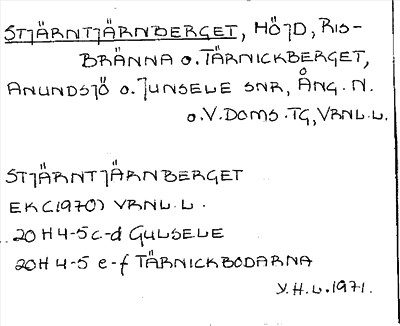 STJÄRNTJÄRNBERGET, HÖJD, RIS-
BRÄNNA o. TÄRNICKBERGET,
ANUNDSJÖ o. JUNSELE SNR, ÅNG. N.
o. V. DOMS. TG, VRNL.L.
STJÄRNTJÄRNBERGET
EK(1970) VRNL.L.
20H 4-5 c-d GULSELE
20H 4-5 e-f TÄRNICKBODARNA
Y.H.L. 1971.